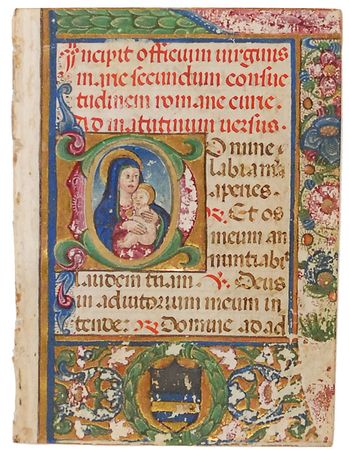 Incipit officium uirginis
marie secundum consue
tudinem romane curie.
Ad matutinum uersus.
Domine
labia m̄a
aperies.
℟ Et os
meum an
nuntiabit
laudem tuam. ℣ Deus
in adiutorium meum in
tende. ℟ Domine ad ad